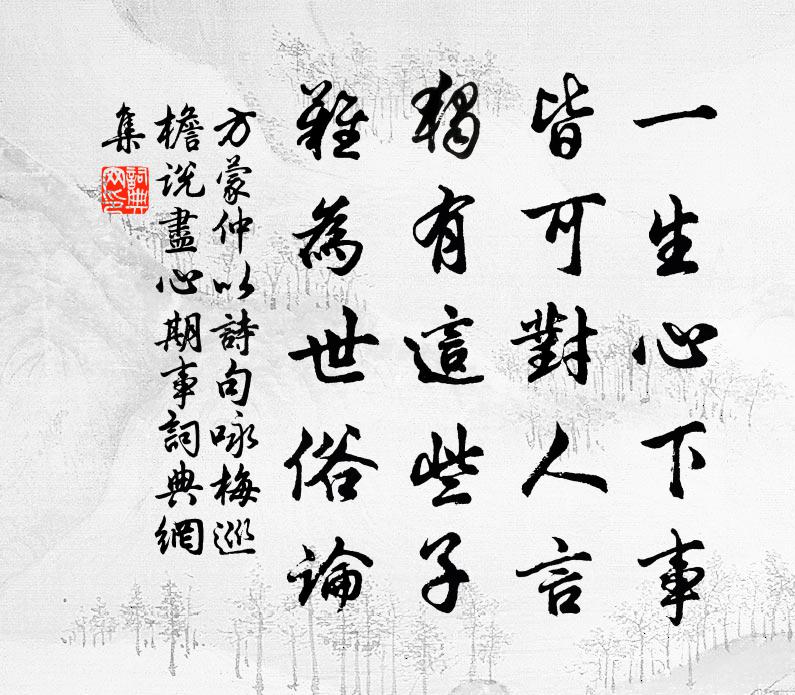 一生心下事
皆可對人言
獨有這些子
難為世俗論
方蒙仲以詩句咏梅巡
檐説盡心期事詞典網
集
詞典
網印